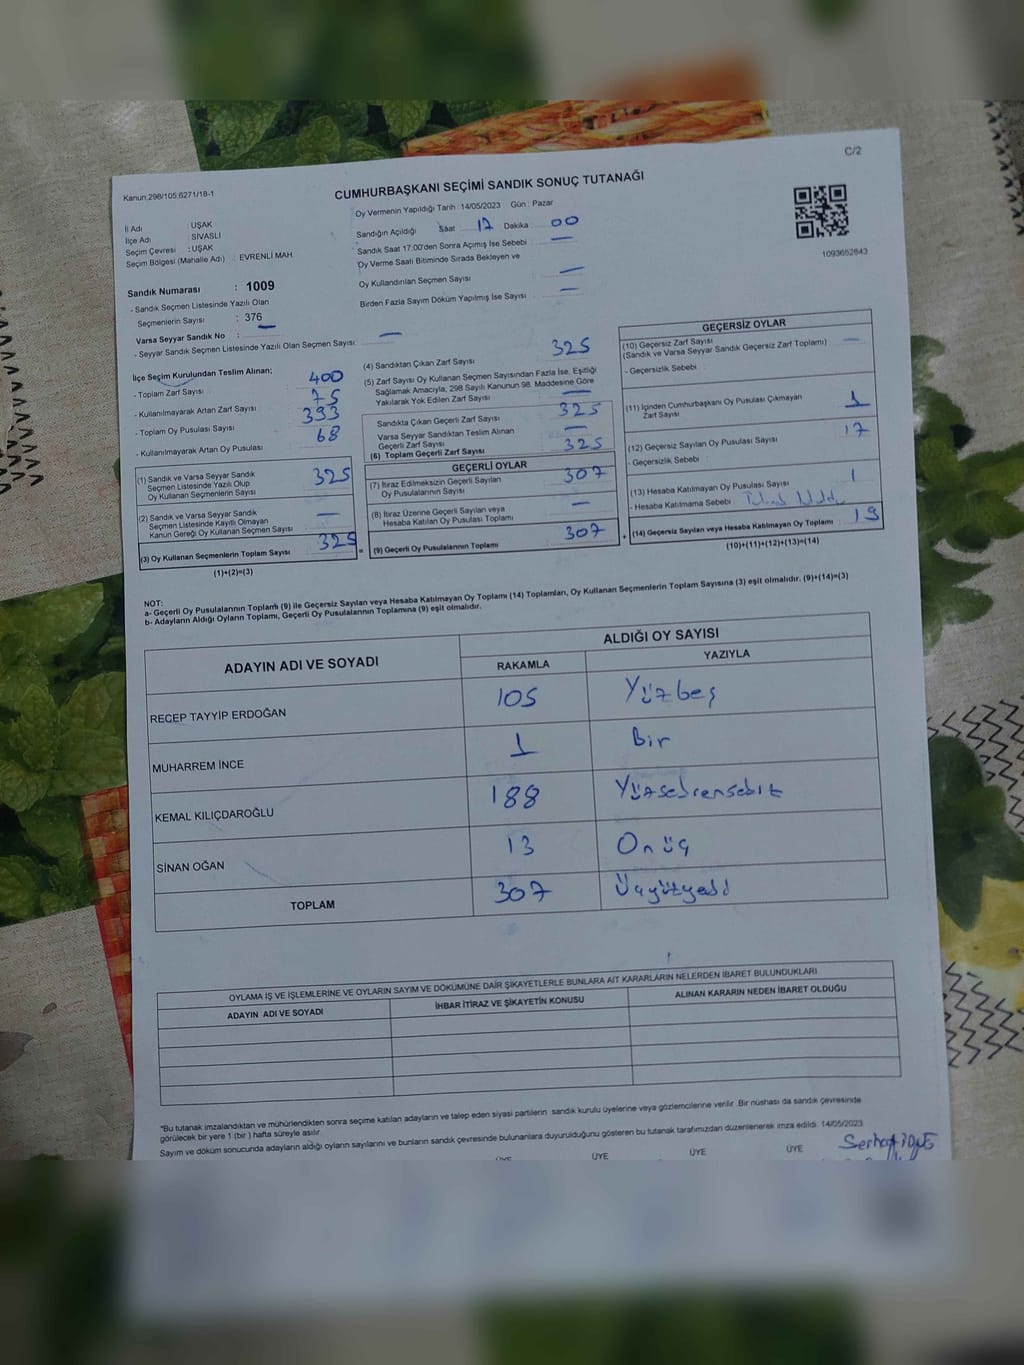 C/2
Kanun 298/105,6271/18-1
CUMHURBAŞKANI SEÇİMİ SANDIK SONUÇ TUTANAĞI
Oy Vermenin Yapıldığı Tarih : 14/05/2023 Gün : Pazar
İl Adı : UŞAK
İlçe Adı : SİVASLI
Seçim Çevresi : UŞAK
Seçim Bölgesi (Mahalle Adı) : EVRENLİ MAH.
Sandığın Açıldığı Saat 17 Dakika : 00
Sandık Saat 17:00'den Sonra Açımış İse Sebebi : —
Oy Verme Saati Bitiminde Sırada Bekleyen ve
Oy Kullandırılan Seçmen Sayısı : —
Birden Fazla Sayım Döküm Yapılmış İse Sayısı : —
1093652843
Sandık Numarası : 1009
- Sandık Seçmen Listesinde Yazılı Olan
Seçmenlerin Sayısı : 376
Varsa Seyyar Sandık No : —
- Seyyar Sandık Seçmen Listesinde Yazılı Olan Seçmen Sayısı: —
İlçe Seçim Kurulundan Teslim Alınan;
- Toplam Zarf Sayısı : 400
- Kullanılmayarak Artan Zarf Sayısı : 75
- Toplam Oy Pusulası Sayısı : 393
- Kullanılmayarak Artan Oy Pusulası : 68
(1) Sandık ve Varsa Seyyar Sandık
Seçmen Listesinde Yazılı Olup
Oy Kullanan Seçmenlerin Sayısı : 325
(2) Sandık ve Varsa Seyyar Sandık
Seçmen Listesinde Kayıtlı Olmayan
Kanun Gereği Oy Kullanan Seçmen Sayısı : —
(3) Oy Kullanan Seçmenlerin Toplam Sayısı : 325 =
(1)+(2)=(3)
(4) Sandıktan Çıkan Zarf Sayısı : 325
(5) Zarf Sayısı Oy Kullanan Seçmen Sayısından Fazla İse, Eşitliği
Sağlamak Amacıyla, 298 Sayılı Kanunun 98. Maddesine Göre
Yakılarak Yok Edilen Zarf Sayısı : —
Sandıkta Çıkan Geçerli Zarf Sayısı : 325
Varsa Seyyar Sandıktan Teslim Alınan
Geçerli Zarf Sayısı : —
(6) Toplam Geçerli Zarf Sayısı : 325
GEÇERLİ OYLAR
(7) İtiraz Edilmeksizin Geçerli Sayılan
Oy Pusulalarının Sayısı : 307
(8) İtiraz Üzerine Geçerli Sayılan veya
Hesaba Katılan Oy Pusulası Toplamı : —
(9) Geçerli Oy Pusulalarının Toplamı : 307 +
GEÇERSİZ OYLAR
(10) Geçersiz Zarf Sayısı
(Sandık ve Varsa Seyyar Sandık Geçersiz Zarf Toplamı) : —
- Geçersizlik Sebebi :
(11) İçinden Cumhurbaşkanı Oy Pusulası Çıkmayan
Zarf Sayısı : 1
(12) Geçersiz Sayılan Oy Pusulası Sayısı : 17
- Geçersizlik Sebebi :
(13) Hesaba Katılmayan Oy Pusulası Sayısı : 1
- Hesaba Katılmama Sebebi :
(14) Geçersiz Sayılan veya Hesaba Katılmayan Oy Toplamı : 19
(10)+(11)+(12)+(13)=(14)
NOT:
a- Geçerli Oy Pusulalarının Toplamı (9) ile Geçersiz Sayılan veya Hesaba Katılmayan Oy Toplamı (14) Toplamları, Oy Kullanan Seçmenlerin Toplam Sayısına (3) eşit olmalıdır. (9)+(14)=(3)
b- Adayların Aldığı Oyların Toplamı, Geçerli Oy Pusulalarının Toplamına (9) eşit olmalıdır.
ADAYIN ADI VE SOYADI
ALDIĞI OY SAYISI
RAKAMLA YAZIYLA
RECEP TAYYİP ERDOĞAN 105 Yüzbeş
MUHARREM İNCE 1 Bir
KEMAL KILIÇDAROĞLU 188 Yüzseksensekiz
SİNAN OĞAN 13 Onüç
TOPLAM 307 Üçyüzyedi
OYLAMA İŞ VE İŞLEMLERİNE VE OYLARIN SAYIM VE DÖKÜMÜNE DAİR ŞİKAYETLERLE BUNLARA AİT KARARLARIN NELERDEN İBARET BULUNDUKLARI
ADAYIN ADI VE SOYADI İHBAR İTİRAZ VE ŞİKAYETİN KONUSU ALINAN KARARIN NEDEN İBARET OLDUĞU
"Bu tutanak imzalandıktan ve mühürlendikten sonra seçime katılan adayların ve talep eden siyasi partilerin sandık kurulu üyelerine veya gözlemcilerine verilir. Bir nüshası da sandık çevresinde
görülecek bir yere 1 (bir) hafta süreyle asılır.
Sayım ve döküm sonucunda adayların aldığı oyların sayılarını ve bunların sandık çevresinde bulunanlara duyurulduğunu gösteren bu tutanak tarafımızdan düzenlenerek imza edildi. 14/05/2023
ÜYE ÜYE ÜYE ÜYE